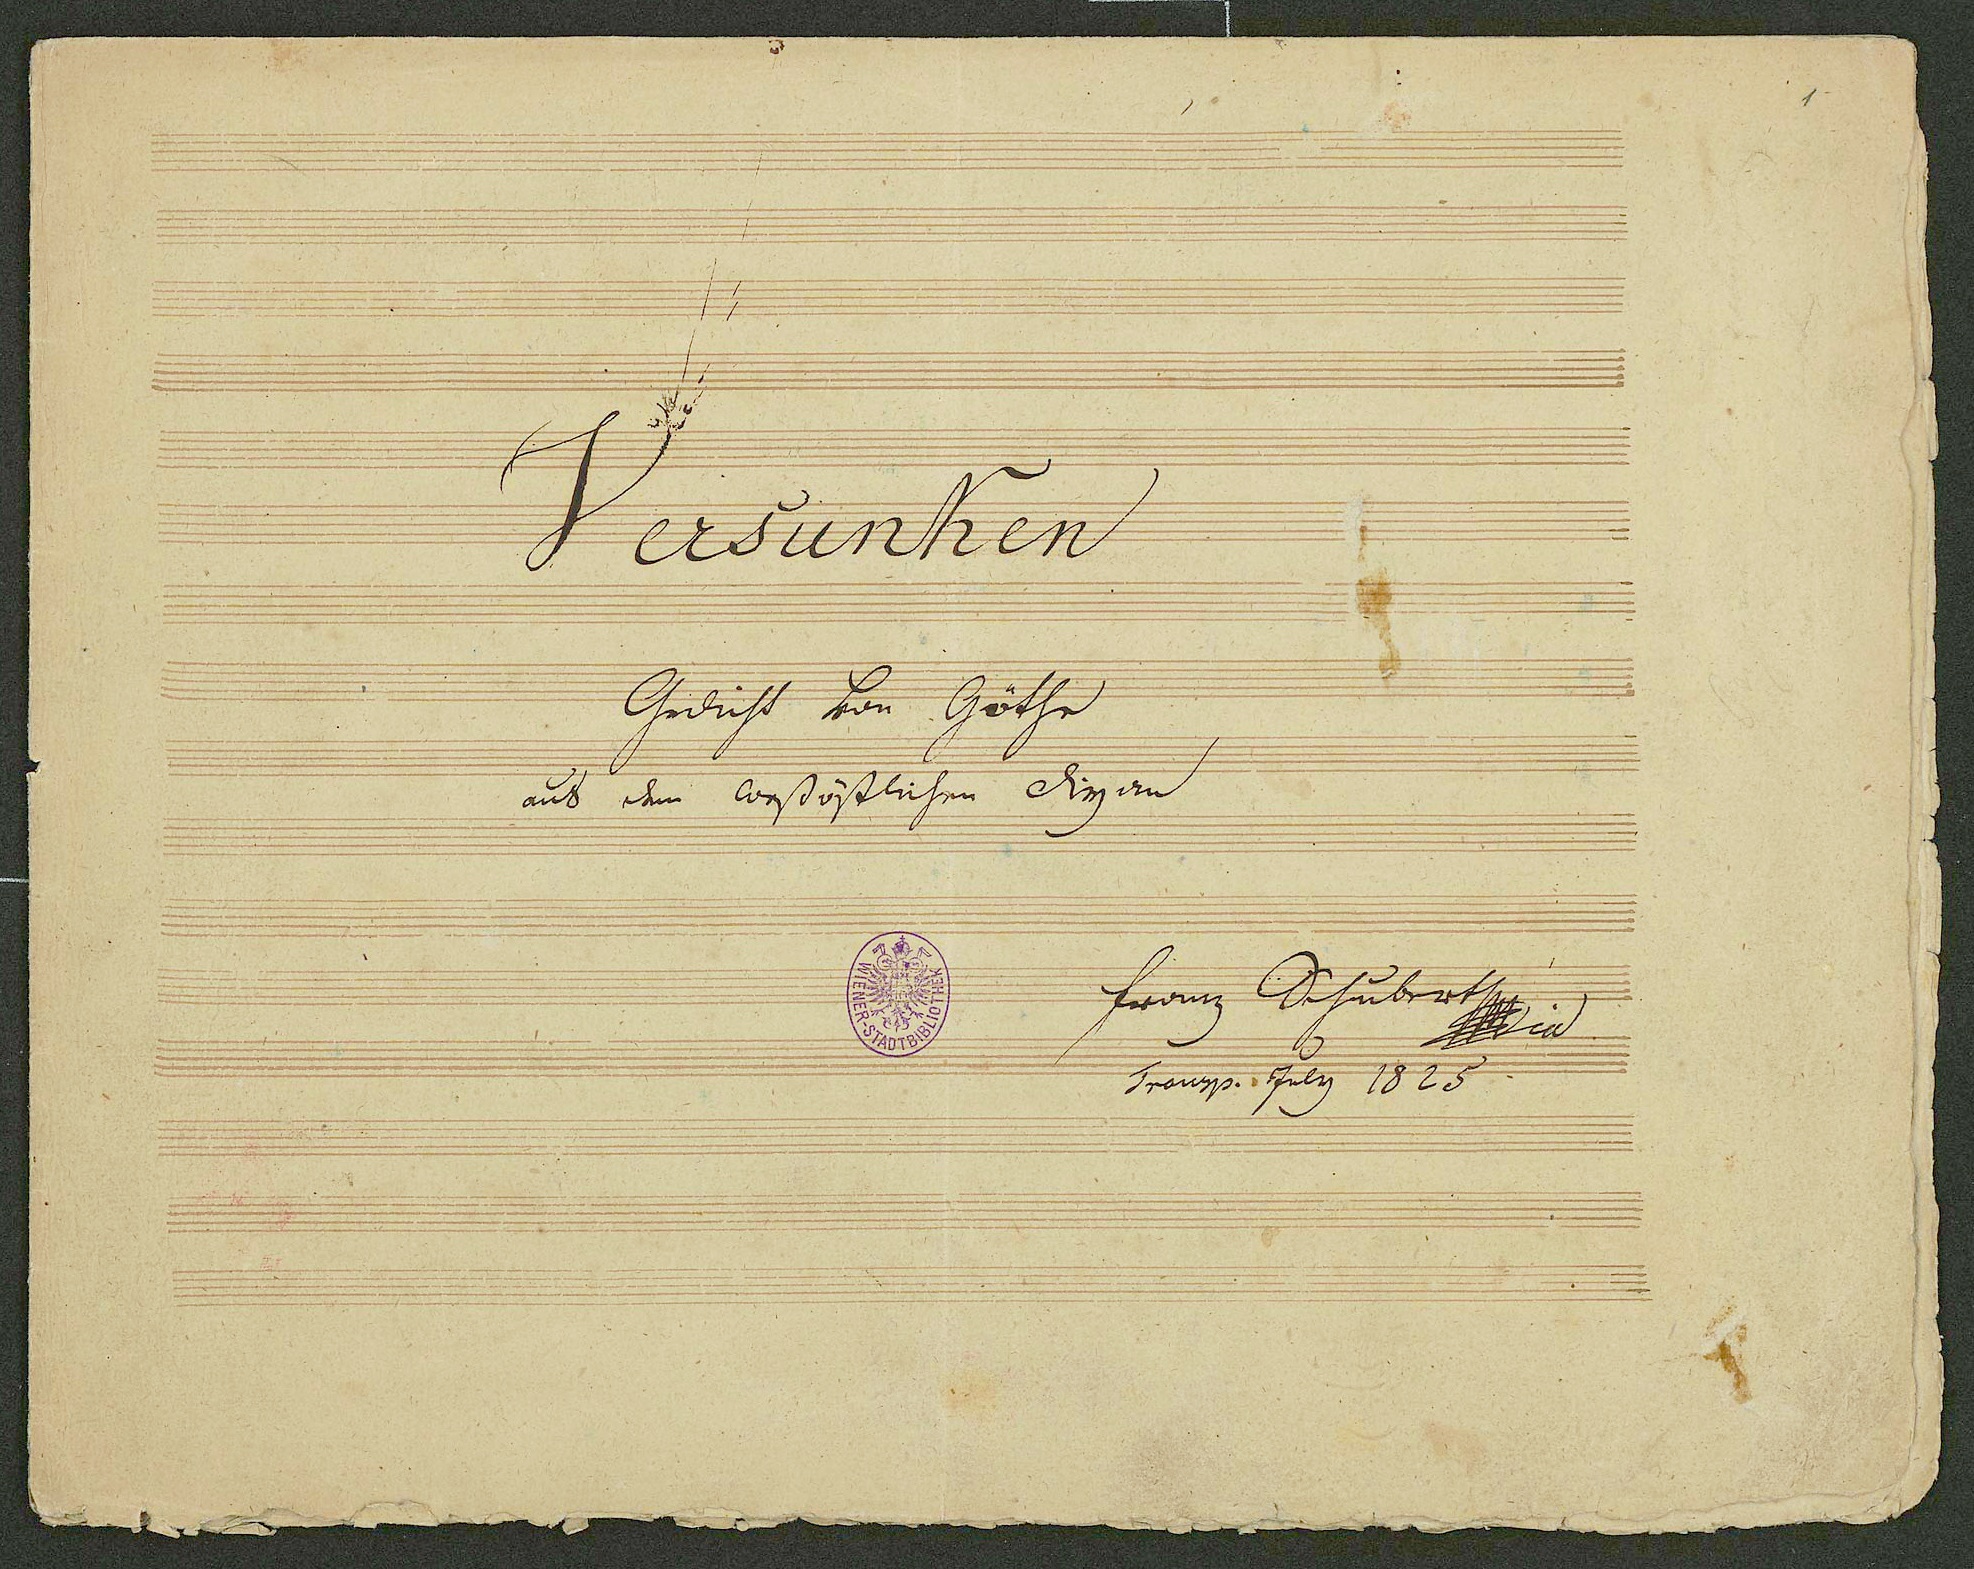 1
Versunken
Gedicht von Göthe
aus dem westöstlichen Divan
Franz Schubert
Transp. July 1825
WIENER-STADTBIBLIOTHEK